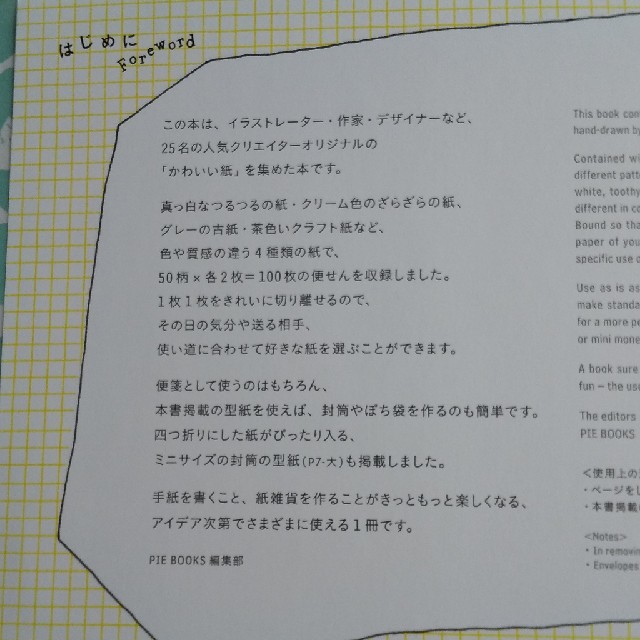 はじめに
Foreword
この本は、イラストレーター・作家・デザイナーなど、
25名の人気クリエイターオリジナルの
「かわいい紙」を集めた本です。
真っ白なつるつるの紙・クリーム色のざらざらの紙、
グレーの古紙・茶色いクラフト紙など、
色や質感の違う4種類の紙で、
50柄×各2枚=100枚の便せんを収録しました。
1枚1枚をきれいに切り離せるので、
その日の気分や送る相手、
使い道に合わせて好きな紙を選ぶことができます。
便箋として使うのはもちろん、
本書掲載の型紙を使えば、封筒やぽち袋を作るのも簡単です。
四つ折りにした紙がぴったり入る、
ミニサイズの封筒の型紙(P7-大)も掲載しました。
手紙を書くこと、紙雑貨を作ることがきっともっと楽しくなる、
アイデア次第でさまざまに使える1冊です。
PIE BOOKS 編集部
This book
hand-drawn by
Contained
different
white, toothy
different in
Bound so
paper of you
specific use
Use as is as
make
for a more
or mini
A book sure
fun – the
The editors
PIE BOOKS
<使用上の
・ページを
・本書掲載
<Notes>
• In
• Envelopes